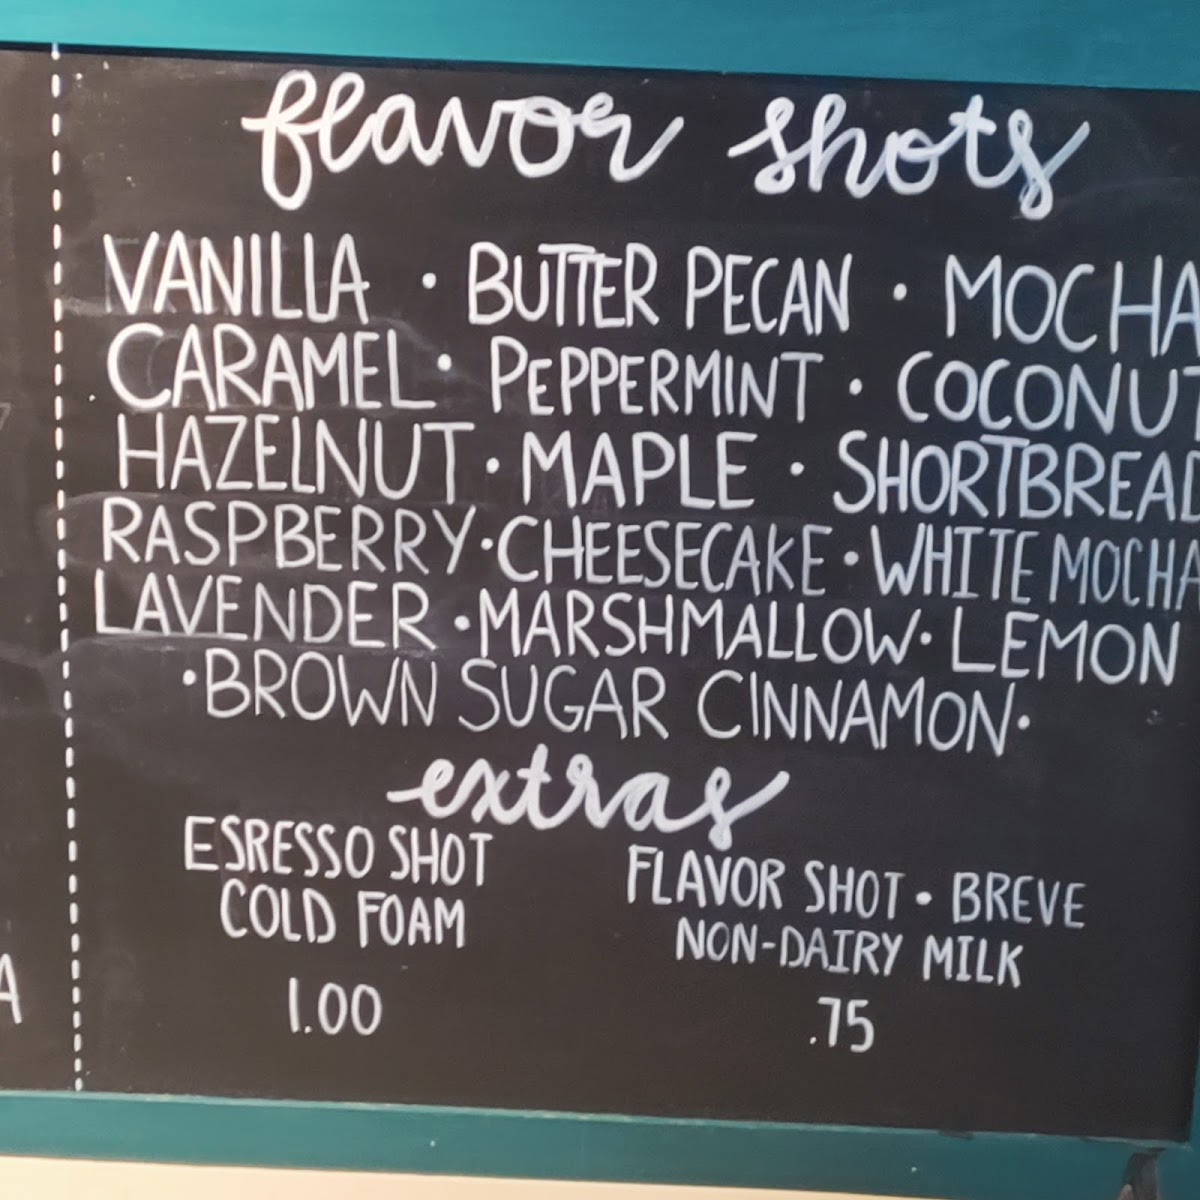 flavor shots
VANILLA · BUTTER PECAN · MOCHA
CARAMEL · PEPPERMINT · COCONUT
HAZELNUT · MAPLE · SHORTBREAD
RASPBERRY · CHEESECAKE · WHITE MOCHA
LAVENDER · MARSHMALLOW · LEMON
· BROWN SUGAR CINNAMON ·
extras
ESRESSO SHOT
COLD FOAM
1.00
FLAVOR SHOT · BREVE
NON-DAIRY MILK
.75